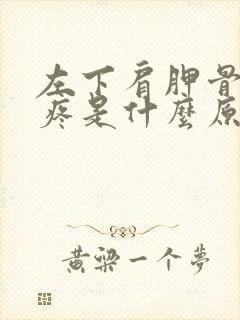 左下肩胛骨
疼是什麼原
黃梁一个夢